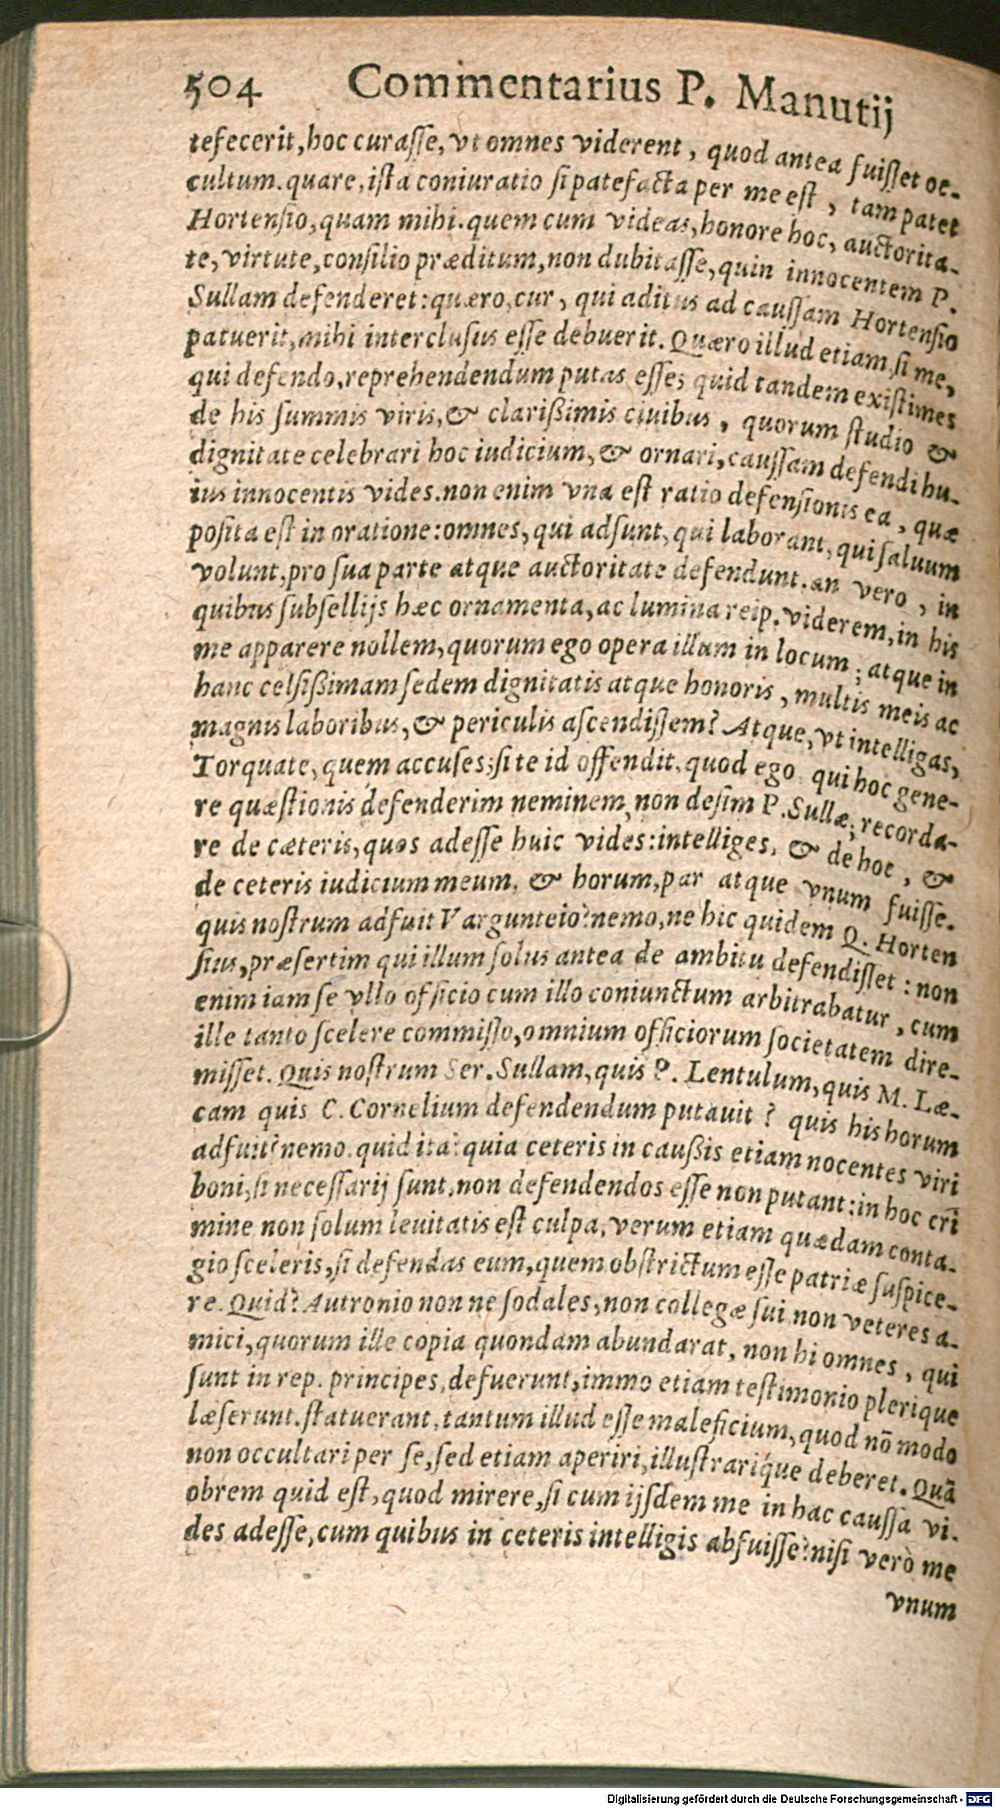 504 Commentarius P. Manutij
tefecerit, hoc curasse, vt omnes viderent, quod antea fuisset oc-
cultum. quare, ista coniuratio si patefacta per me est, tam patet
Hortensio, quam mihi. quem cum videas, honore hoc, auctorita-
te, virtute, consilio præditum, non dubitasse, quin innocentem P.
Sullam defenderet: quæro, cur, qui aditus ad caussam Hortensio
patuerit, mihi interclusus esse debuerit. Quæro illud etiam, si me,
qui defendo, reprehendendum putas esse; quid tandem existimes
de his summis viris, & clarißimis ciuibus, quorum studio &
dignitate celebrari hoc iudicium, & ornari, caussam defendi hu-
ius innocentis vides. non enim vna est ratio defensionis ea, quæ
posita est in oratione: omnes, qui adsunt, qui laborant, qui saluum
volunt, pro sua parte atque auctoritate defendunt. an vero, in
quibus subsellijs hæc ornamenta, ac lumina reip. viderem, in his
me apparere nollem, quorum ego opera illum in locum; atque in
hanc celsißimam sedem dignitatis atque honoris, multis meis ac
magnis laboribus, & periculis ascendissem? Atque, vt intelligas,
Torquate, quem accuses; si te id offendit, quod ego qui hoc gene-
re quæstionis defenderim neminem, non desim P. Sullæ; recorda-
re de cæteris, quos adesse huic vides: intelliges, & de hoc, &
de ceteris iudicium meum, & horum, par atque vnum fuisse.
quis nostrum adfuit Vargunteio? nemo, ne hic quidem Q. Horten
sius, præsertim qui illum solus antea de ambitu defendisset: non
enim iam se vllo officio cum illo coniunctum arbitrabatur, cum
ille tanto scelere commisso, omnium officiorum societatem dire-
misset. Quis nostrum Ser. Sullam, quis P. Lentulum, quis M. Læ-
cam quis C. Cornelium defendendum putauit? quis his horum
adfuit? nemo. quid ita? quia ceteris in caußis etiam nocentes viri
boni, si necessarij sunt, non defendendos esse non putant: in hoc cri
mine non solum leuitatis est culpa, verum etiam quædam conta-
gio sceleris, si defendas eum, quem obstrictum esse patriæ suspice-
re. Quid? Autronio non ne sodales, non collegæ sui non veteres a-
mici, quorum ille copia quondam abundarat, non hi omnes, qui
sunt in rep. principes, defuerunt, immo etiam testimonio plerique
læserunt. statuerant, tantum illud esse maleficium, quod nō modo
non occultari per se, sed etiam aperiri, illustrariq́ue deberet. Quā
obrem quid est, quod mirere, si cum ijsdem me in hac caussa vi-
des adesse, cum quibus in ceteris intelligis abfuisse? nisi verò me
vnum
Digitalisierung gefördert durch die Deutsche Forschungsgemeinschaft - DFG